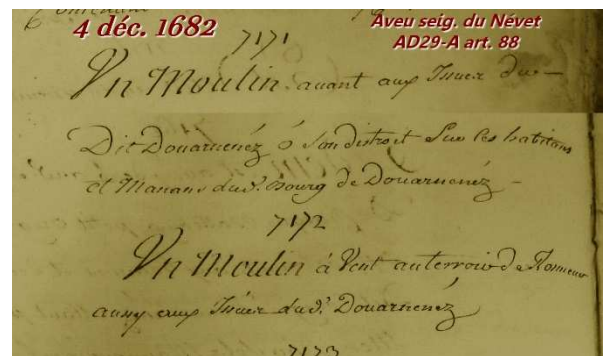 4 déc. 1682
Aveu seig. du Névet
AD29-A art. 88
7171
Un Moulin avant aux Issues du
Dit Douarnenéz ó son distroit Sur les habitans
et Manans dud. Bourg de Douarnenéz
7172
Un Moulin à Vent au terroir de
aussy aux Issues dud. Douarnenéz
7173